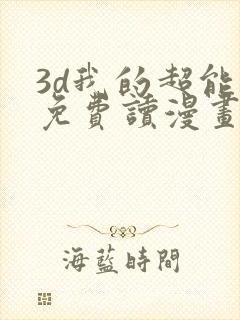 3d我的超能
免費讀漫畫
海藍時間